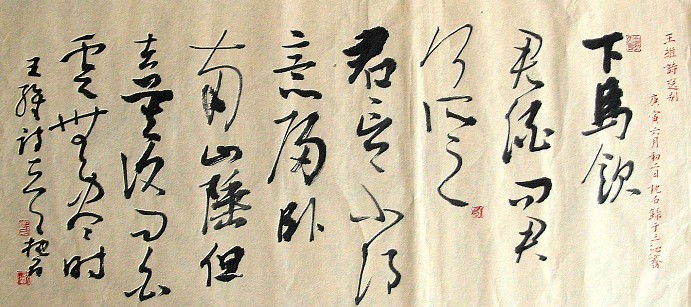 王維詩送别
庚寅六月初二日
下馬飲
君酒問君
何所之
君言不得
意歸臥
南山陲但
去莫復問白
雲無盡時
王維詩